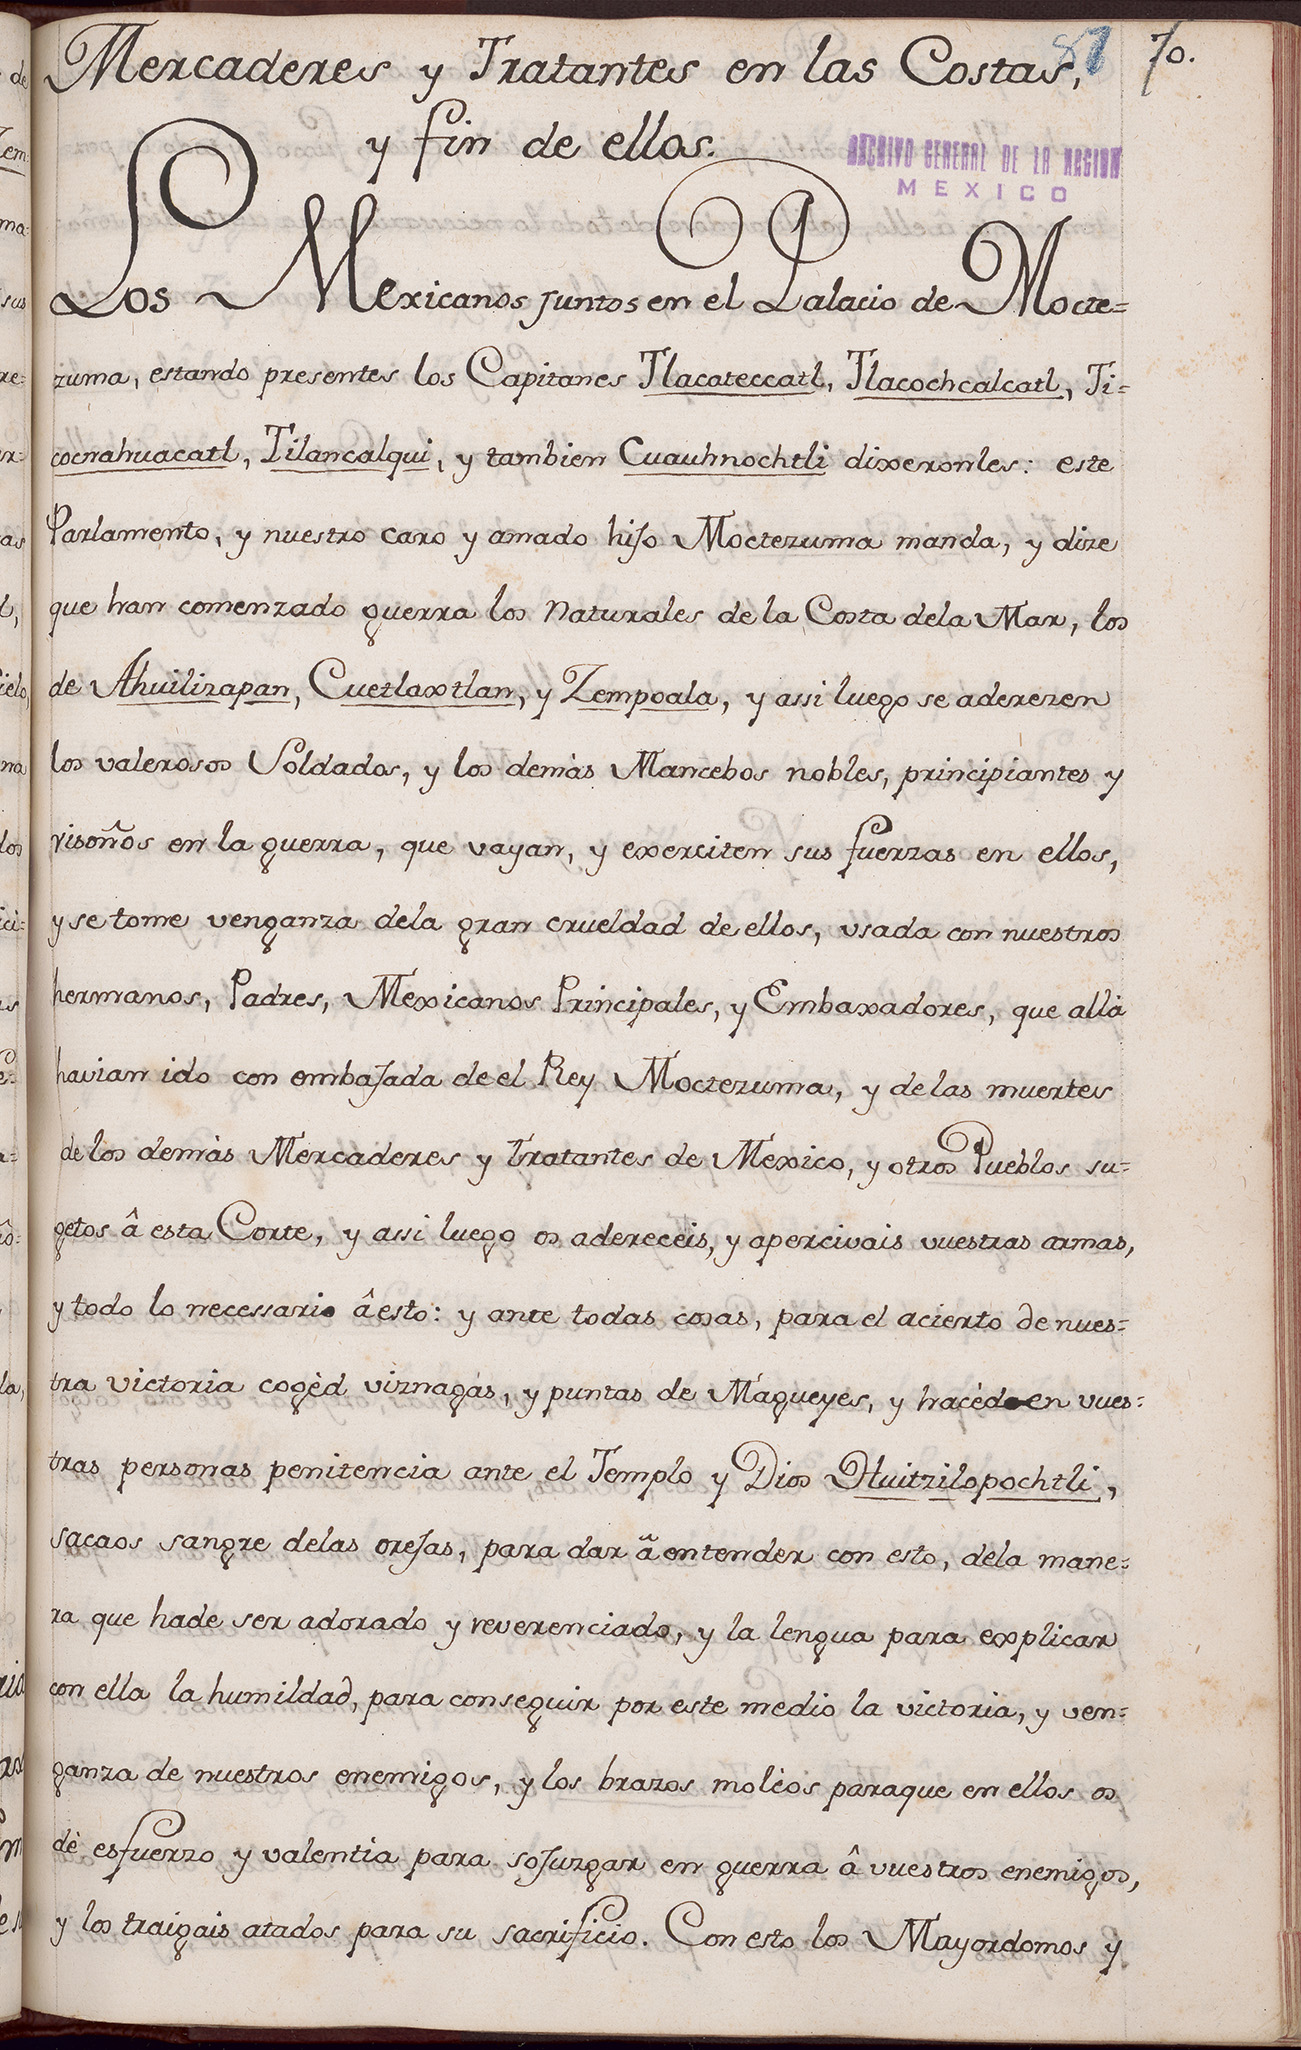 Mercaderes y Tratantes en las Costas,
81 70.
y fin de ellos.
ARCHIVO GENERAL DE LA NACION
MEXICO
Los Mexicanos juntos en el Palacio de Mocte=
zuma, estando presentes los Capitanes Tlacateccatl, Tlacochcalcatl, Ti=
cocnahuacatl, Tilancalqui, y tambien Cuauhnochtli dixeronles: este
Parlamento, y nuestro caro y amado hijo Moctezuma manda, y dize
que han comenzado guerra los Naturales de la Costa dela Mar, los
de Ahuilizapan, Cuetlaxtlan, y Zempoala, y assi luego se aderezen
los valerosos Soldados, y los demàs Mancebos nobles, principiantes y
visoños en la guerra, que vayan, y exerciten sus fuerzas en ellos,
y se tome venganza dela gran crueldad de ellos, usada con nuestros
hermanos, Padres, Mexicanos Principales, y Embaxadores, que allà
havian ido con embajada de el Rey Moctezuma, y de las muertes
de los demàs Mercaderes y tratantes de Mexico, y otros Pueblos su=
getos â esta Corte, y assi luego os aderecèis, y apercivais vuestras armas,
y todo lo necessario â esto: y ante todas cosas, para el acierto de nues=
tra victoria cogèd viznagas, y puntas de Magueyes, y hacèd en vues=
tras personas penitencia ante el Templo y Dios Huitzilopochtli,
sacaos sangre delas orejas, para dar â entender con esto, dela mane=
ra que hade ser adorado y reverenciado, y la lengua para explicar
con ella la humildad, para conseguir por este medio la victoria, y ven=
ganza de nuestros enemigos, y los brazos molèos paraque en ellos os
dè esfuerzo y valentia para sojuzgar en guerra â vuestros enemigos,
y los traigais atados para su sacrificio. Con esto los Mayordomos y